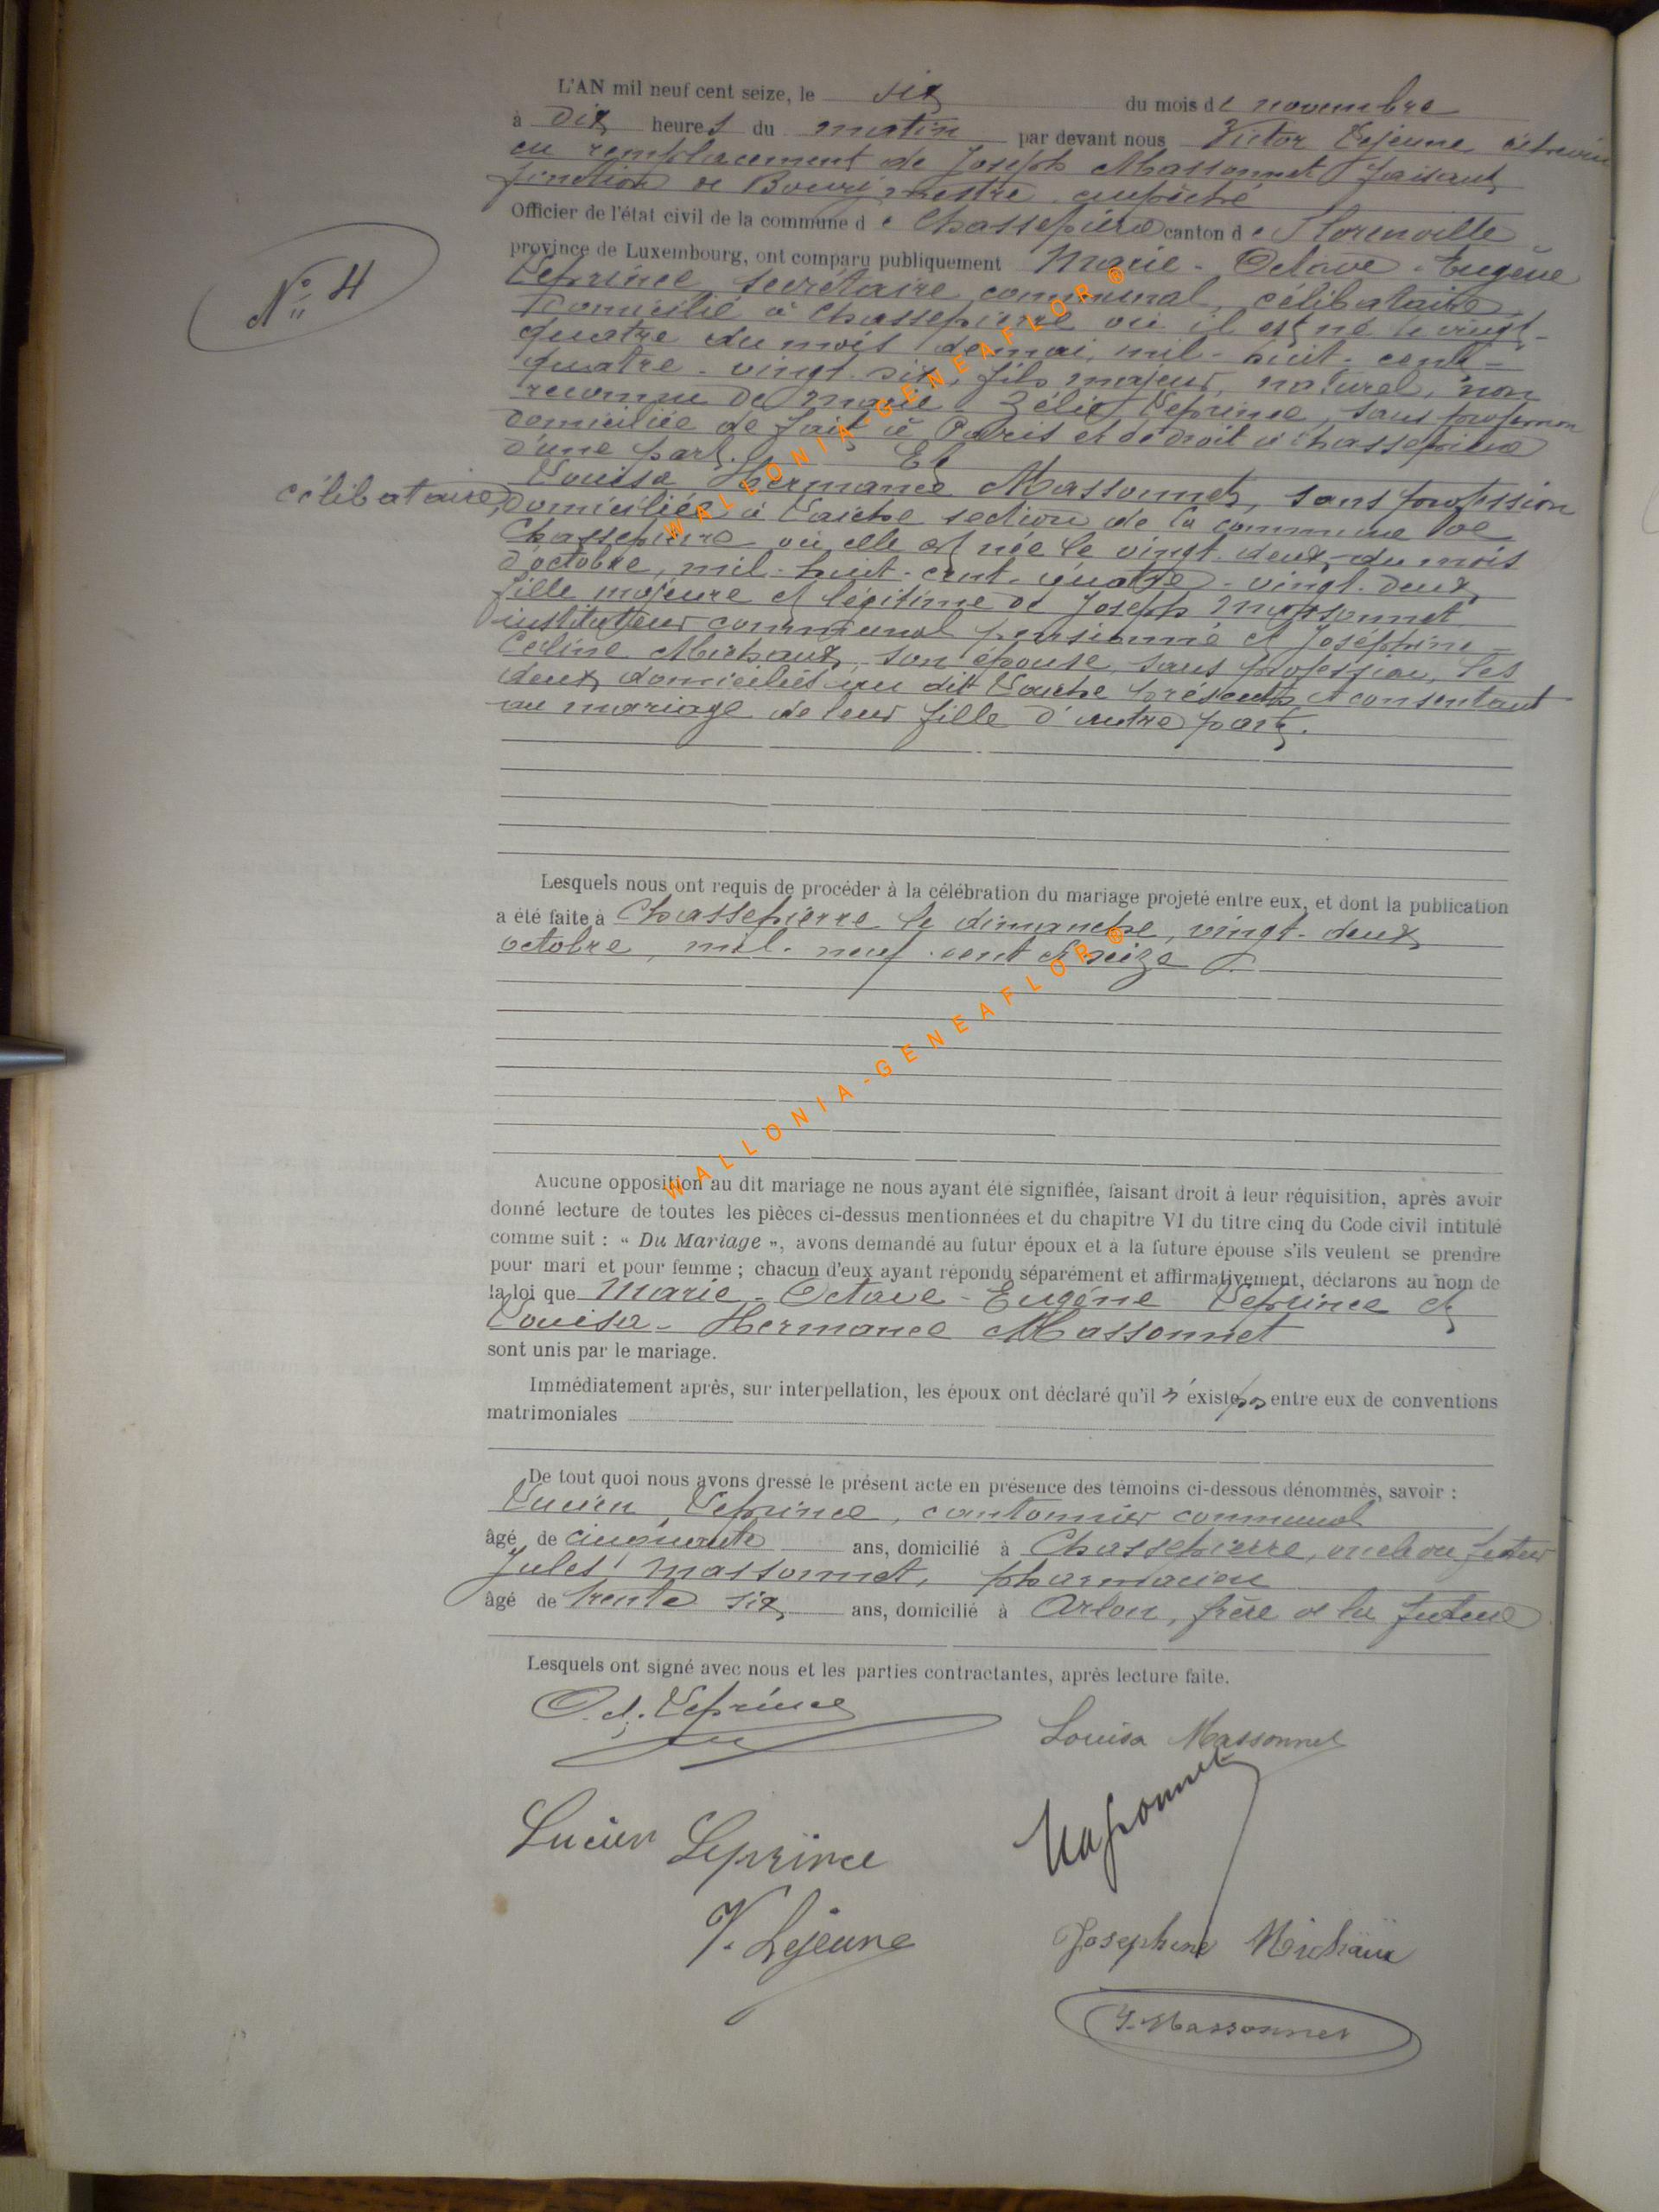 L'AN mil neuf cent seize, le six du mois de novembre
à dix heures du matin par devant nous Victor Lejeune échevin
en remplacement de Joseph Massonnet faisant
fonction de Bourgmestre empêché
Officier de l'état civil de la commune de Chassepierre canton de Florenville
province de Luxembourg, ont comparu publiquement Marie - Octave - Eugène
Leprince, secrétaire communal, célibataire,
domicilié à Chassepierre où il est né le vingt-
quatre du mois de mai, mil - huit - cent -
quatre - vingt - six, fils majeur, naturel, non
reconnu de Marie - Zélie Leprince, sans profession
domiciliée de fait à Paris et de droit à Chassepierre
d'une part. Et
Louisa Hermance Massonnet, sans profession
célibataire, domiciliée à Laiche section de la commune de
Chassepierre où elle est née le vingt-deux du mois
d'octobre, mil - huit - cent - quatre - vingt-deux,
fille majeure et légitime de Joseph Massonnet
instituteur communal pensionné et Joséphine
Céline Michaux, son épouse, sans profession, les
deux domiciliés au dit Laiche présents et consentant
au mariage de leur fille d'autre part.
N° 4
Lesquels nous ont requis de procéder à la célébration du mariage projeté entre eux, et dont la publication
a été faite à Chassepierre le dimanche, vingt-deux
octobre, mil - neuf - cent et seize
Aucune opposition au dit mariage ne nous ayant été signifiée, faisant droit à leur réquisition, après avoir
donné lecture de toutes les pièces ci-dessus mentionnées et du chapitre VI du titre cinq du Code civil intitulé
comme suit : « Du Mariage », avons demandé au futur époux et à la future épouse s'ils veulent se prendre
pour mari et pour femme ; chacun d'eux ayant répondu séparément et affirmativement, déclarons au nom de
la loi que Marie - Octave - Eugène Leprince et
Louisa - Hermance Massonnet
sont unis par le mariage.
Immédiatement après, sur interpellation, les époux ont déclaré qu'il n'existe pas entre eux de conventions
matrimoniales
De tout quoi nous avons dressé le présent acte en présence des témoins ci-dessous dénommés, savoir :
Lucien Leprince, cantonnier communal
âgé de cinquante ans, domicilié à Chassepierre, oncle du futur
Jules Massonnet, pharmacien
âgé de trente six ans, domicilié à Arlon, frère de la future
Lesquels ont signé avec nous et les parties contractantes, après lecture faite.
O. Leprince
Louisa Massonnet
Massonnet
Lucien Leprince
V. Lejeune
Josephine Michaux
J. Massonnet
WALLONIA-GENEAFLOR ®
WALLONIA-GENEAFLOR ®